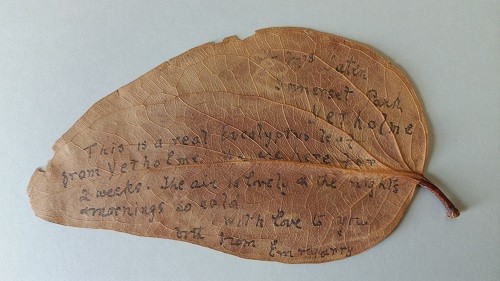 Somerset Park
Yetholme
This is a real eucalyptus leaf
from Yetholme. We are here for
2 weeks. The air is lovely & the nights
& mornings so cold.
With love to you
both from